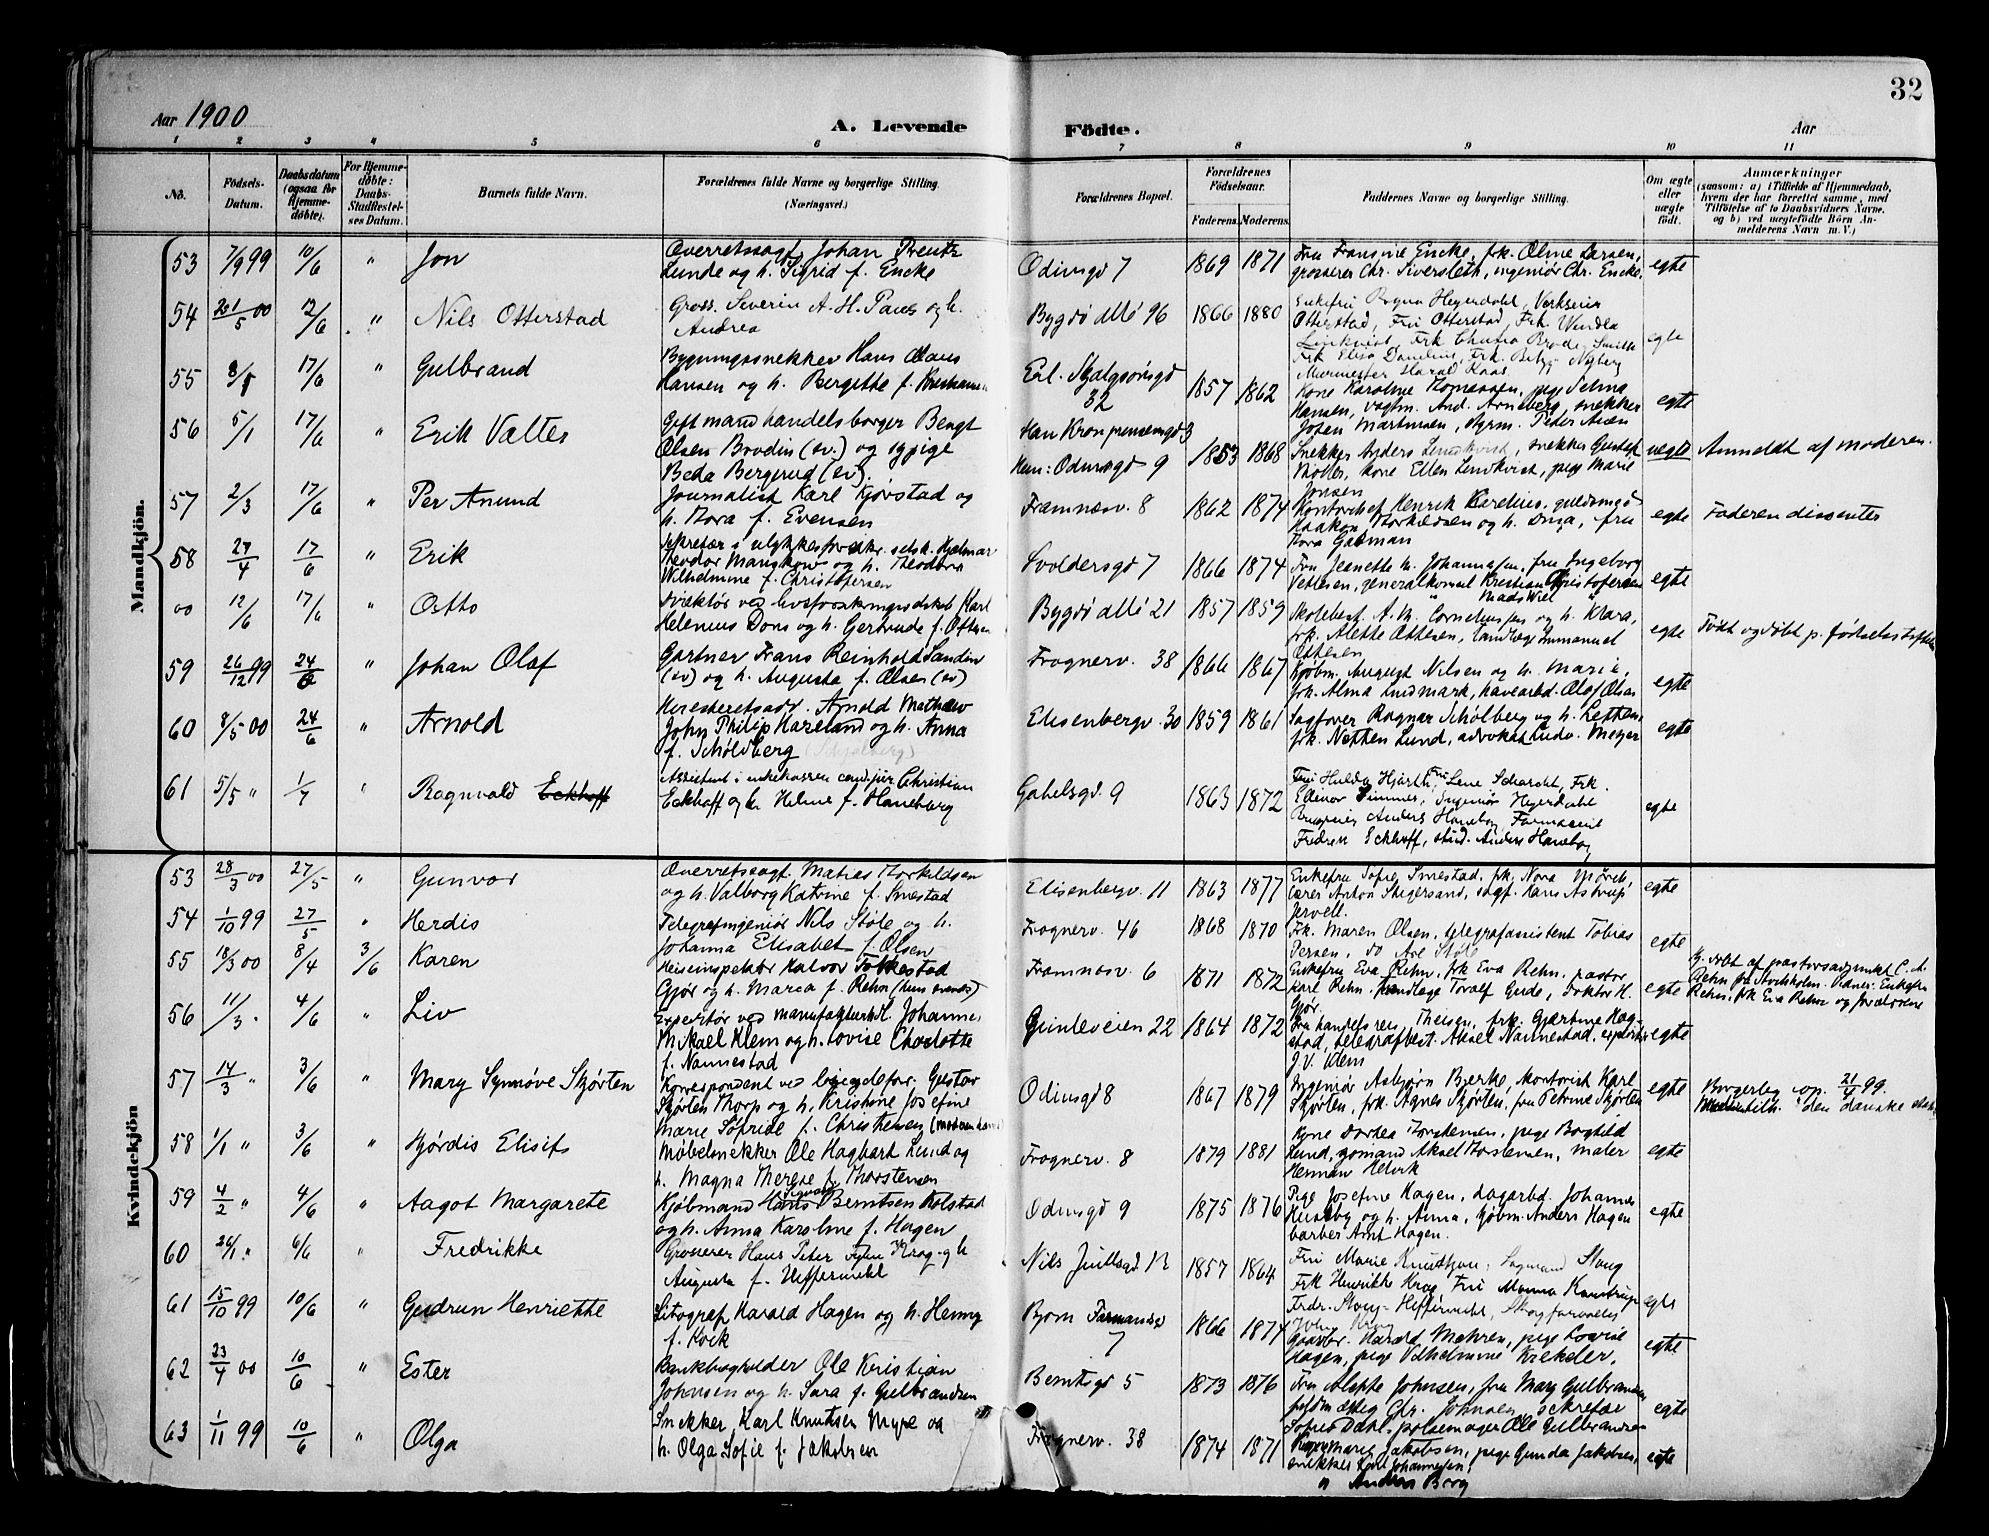 32
Aar 1900
A. Levende Födte.
Aar
1 2 3 4 5 6 7 8 9 10 11
No.
Födsels-Datum.
Daabsdatum (ogsaa for Hjemmedöbte).
For Hjemmedöbte: Daabs-Stadfæstelses Datum.
Barnets fulde Navn.
Forældrenes fulde Navne og borgerlige Stilling. (Næringsvei.)
Forældrenes Bopæl.
Forældrenes Födselsaar.
Faderens. Moderens.
Faddernes Navne og borgerlige Stilling.
Om ægte eller uægte födt.
Anmærkninger
(saasom: a) i Tilfælde af Hjemmedaab, hvem der har forrettet samme, med Tilföielse af to Daabsvidners Navne, og b) ved uægtefödte Börn Anmelderens Navn m. V.)
Mandkjön.
53 7/9 99 10/6 " Jon
Overretssagf. Johan
Lunde og h. Sigrid f. Encke
Odinsgd 7 1869 1871
Fru Fransine Encke, frk. Oline Larsen,
grosserer Chr. Siversleth, ingeniör Chr. Encke
egte
54 /5 00 12/6 " Nils Otterstad
Gross. Severin A. H. Paus og h.
Andrea
Bygdö allé 96 1866 1880
Enkefru Ragna Heyerdahl,
Otterstad, Fru Otterstad, Frk. Wendla
egte
55 17/6 " Gulbrand
Bygningssnekker Hans Olaus
Hansen og h. Bergitte f. Kristiansen
Erl. Skjalgsönsgd
32
1857 1862
Murmester Harald Kaas
Kone Karoline Thomassen, pige Selma
Hansen, vagtm. And. Arneberg, snekker
Josen Martinsen, styrm. Peter
egte
56 5/1 17/6 " Erik Valter
Gift mand handelsborger Bengt
Olsen Brodin (sv.) og ugpige
Beda Bergerud (sv)
Han Kronprinsensgd 3
Hun: Odinsgd 9
1853 1868
Snekker Anders Lindkvist, snekker Gustaf
Möller, kone Ellen Lindkvist, pige Marie
Jonsen
uegte
Anmeldt af moderen.
57 2/3 17/6 " Per Anund
Journalist Karl Kjörstad og
h. Thora f. Evensen
Framnæsv. 8 1862 1874
Kontorchef Henrik guldsmed
Haakon Thorkildsen og h. Dina, fru
Thora Gasman
egte
Faderen dissenter
58 27/4 17/6 " Erik
Sekretær i ulykkesforsikr. selsk. Hjalmar
Theodor Mangkow og h. Theodora
Wilhelmine f. Christofersen
Svoldersgd 7 1866 1874
Fru Jeanette M. Johannesen, fru Ingeborg
Vetlesen, generalkonsul Kristian Kristofersen
Mads Wiel
egte
00 12/6 17/6 " Ostto
ved livsforsikringsselskab Karl
Helenius Dons og h. Gertrude f. Ottesen
Bygdö allé 21 1857 1859
Skolebest. A. M. Corneliussen og h. Klara,
frk. Alette Ottesen, Immanuel
Ottesen
egte
Födt og döbt p. födselsstiftelsen
59 26/12 99 24/6 " Johan Olaf
Gartner Frans Reinhold Sandin
(sv) og h. Augusta f. Olsen (sv)
Frognerv. 38 1866 1867
Kjöbm. August Nilsen og h. Marie,
frk. Alma Lindmark, havearbd. Olaf Olsen
egte
60 8/5 00 24/6 " Arnold
Höiesteretsadv. Arnold Mathew
John Philip Hareland og h. Anna
f. Schöldberg
Elisenbergv. 30 1859 1861
Sagförer Ragnar Schölberg og h. Lethen,
frk. Nethen Lund, advokat Ludv. Meyer
egte
61 5/5 " 1/7 " Ragnvald Eckhoff
Assistent i enkekassen cand. jur Christian
Eckhoff og h. Helene f. Haneborg
Gabelsgd. 9 1863 1872
Fru Hulda Hjorth, Fru Lene Schardt, Frk.
Ellinor Simmer, Ingeniör Heyerdahl
Anders Haneborg, Farmaceut
Fredrik Eckhoff, stud. Anders Haneborg
egte
Kvindekjön
53 28/3 00 27/5 " Gunvor
Overretssagf. Matias Thorkildsen
og h. Valborg Katrine f. Smestad
Elisenbergv. 11 1863 1877
Enkefru Sofie Smestad, frk. Nora
lærer Anton Skigersand, sagf. Hans Astrup
Jervell.
egte
54 1/10 99 27/5 " Herdis
Telegrafingeniör Nils Stöle og h.
Johanna Elisabet f. Olsen
Frognerv. 46 1868 1870
Frk. Maren Olsen, telegrafassistent Tobias
Persen, do Are Stöle
egte
55 18/3 00 8/4 3/6 Karen
Heiseinspektör Halvor Folkestad
Gjör og h. Maria f. Rehn (hun svensk)
Framnæsv. 6 1871 1872
Enkefru Eva Rehn, frk Eva Rehn, pastor
Karl Rehn, tandlæge Toralf Gude, Doktor H.
Gjör
egte
Hj. döbt af pastorsadjunkt C. A.
Rehn fra Stockholm. Vidner: Enkefru
Rehn, frk Eva Rehn og forældrene
56 11/3 " 4/6 " Liv
Expeditör ved manufakturh. Johannes
Mikael Klem og h. Lovise Charlotte
f. Nannestad
Gimleveien 22 1864 1872
Fru handelsreis Theisen, frk. Gjertine Hagstad,
telegrafbest. Aksel Nannestad, expeditör
J. V. Klem
egte
57 14/3 " 3/6 " Mary Synnöve Skjörten
Korrespondent ved Gustav
Skjörten Thorp og h. Kristine Josefine
Marie Sofride f. Christensen
Odinsgd 8 1867 1879
Ingeniör Asbjörn Bjerke, kontorist Karl
Skjörten, frk. Agnes Skjörten, fru Petrine Skjörten
egte
Borgerlig 99.
den danske
58 1/1 " 3/6 " Hjördis Elisif
Möbelsnekker Ole Hagbart Lund og
h. Magna Therese f. Thorstensen
Frognerv. 8 1879 1881
Kone Dorthea Torstensen, pige Baghild
Lund, sjömand Aksel Torstensen, maler
Herman Helvik
egte
59 4/2 " 4/6 " Aagot Margarete
Kjöbmand Hans Berntsen Kolstad
og h. Anna Karoline f. Hagen
Odinsgd 9 1875 1876
Pige Josefine Hagen, dagarbd. Johannes
Huseby og h. Anna, kjöbm. Anders Hagen
barber Arnt Hagen.
egte
60 26/1 " 6/6 " Fredrikke
Grosserer Hans Peter Fyhn Krag og h
Augusta f. Heffermehl
Nils Juelsgd 12 1857 1864
Fru Marie Knutzon, Sogmand Stang
Frk Henrikke Krag, Fru Manna Kamstrup
Frdr. Stang-Heffermehl, Skogforvalter
egte
61 15/10 99 10/6 " Gudrun Henriette
Litograf Harald Hagen og h. Henny
f. Kock
Bjørn Farmandsgd
7
1866 1874
Gaardbr. Harald Mehren, pige Lovise
Hagen, pige Vilhelmine Krekeler.
egte
62 23/4 00 10/6 " Ester
Bankbogholder Ole Kristian
Johnsen og h. Sara f. Gulbrandsen
Berntsgd 5 1873 1876
Fru Alette Johnsen, fru Mary Gulbrandsen
Chr. Johnsen, sekretær
Sofus Dahl, pölsemager Ole Gulbrandsen
egte
63 1/11 99 10/6 " Olga
Snekker Karl Knutsen Myre og
h. Olga Sofie f. Jakobsen
Frognerv. 38 1874 1871
Marie Jakobsen, pige Gunda Jakobsen,
snekker Karl Johannesen,
" Anders Berg
egte